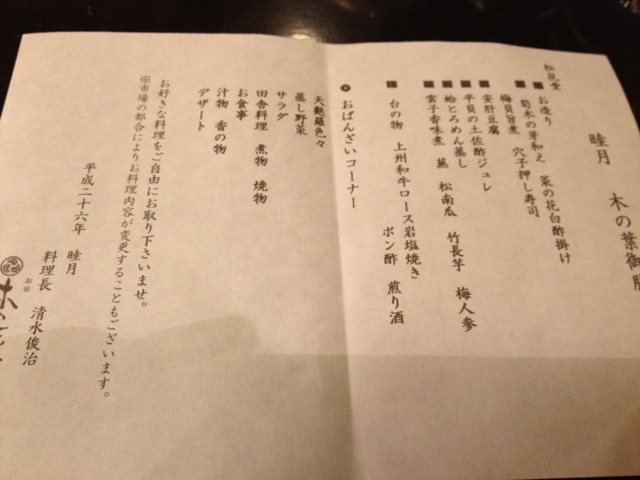 睦月 木の葉御膳
松花堂
■ お造り
筍木の芽和え 菜の花白酢掛け
■ 梅貝旨煮 穴子押し寿司
■ 安肝豆腐
■ 平貝の土佐酢ジュレ
■ 蛤とろめん蒸し
■ 雲子香味煮 蕪 松南瓜 竹長芋 梅人参
■ 台の物 上州和牛ロース岩塩焼き
ポン酢 煎り酒
おばんざいコーナー
天麩羅色々
蒸し野菜
サラダ
田舎料理 煮物 焼物
お食事
汁物 香の物
デザート
お好きな料理をご自由にお取り下さいませ。
※市場の都合によりお料理内容が変更することもございます。
平成二十六年 睦月
料理長 清水俊治
お宿